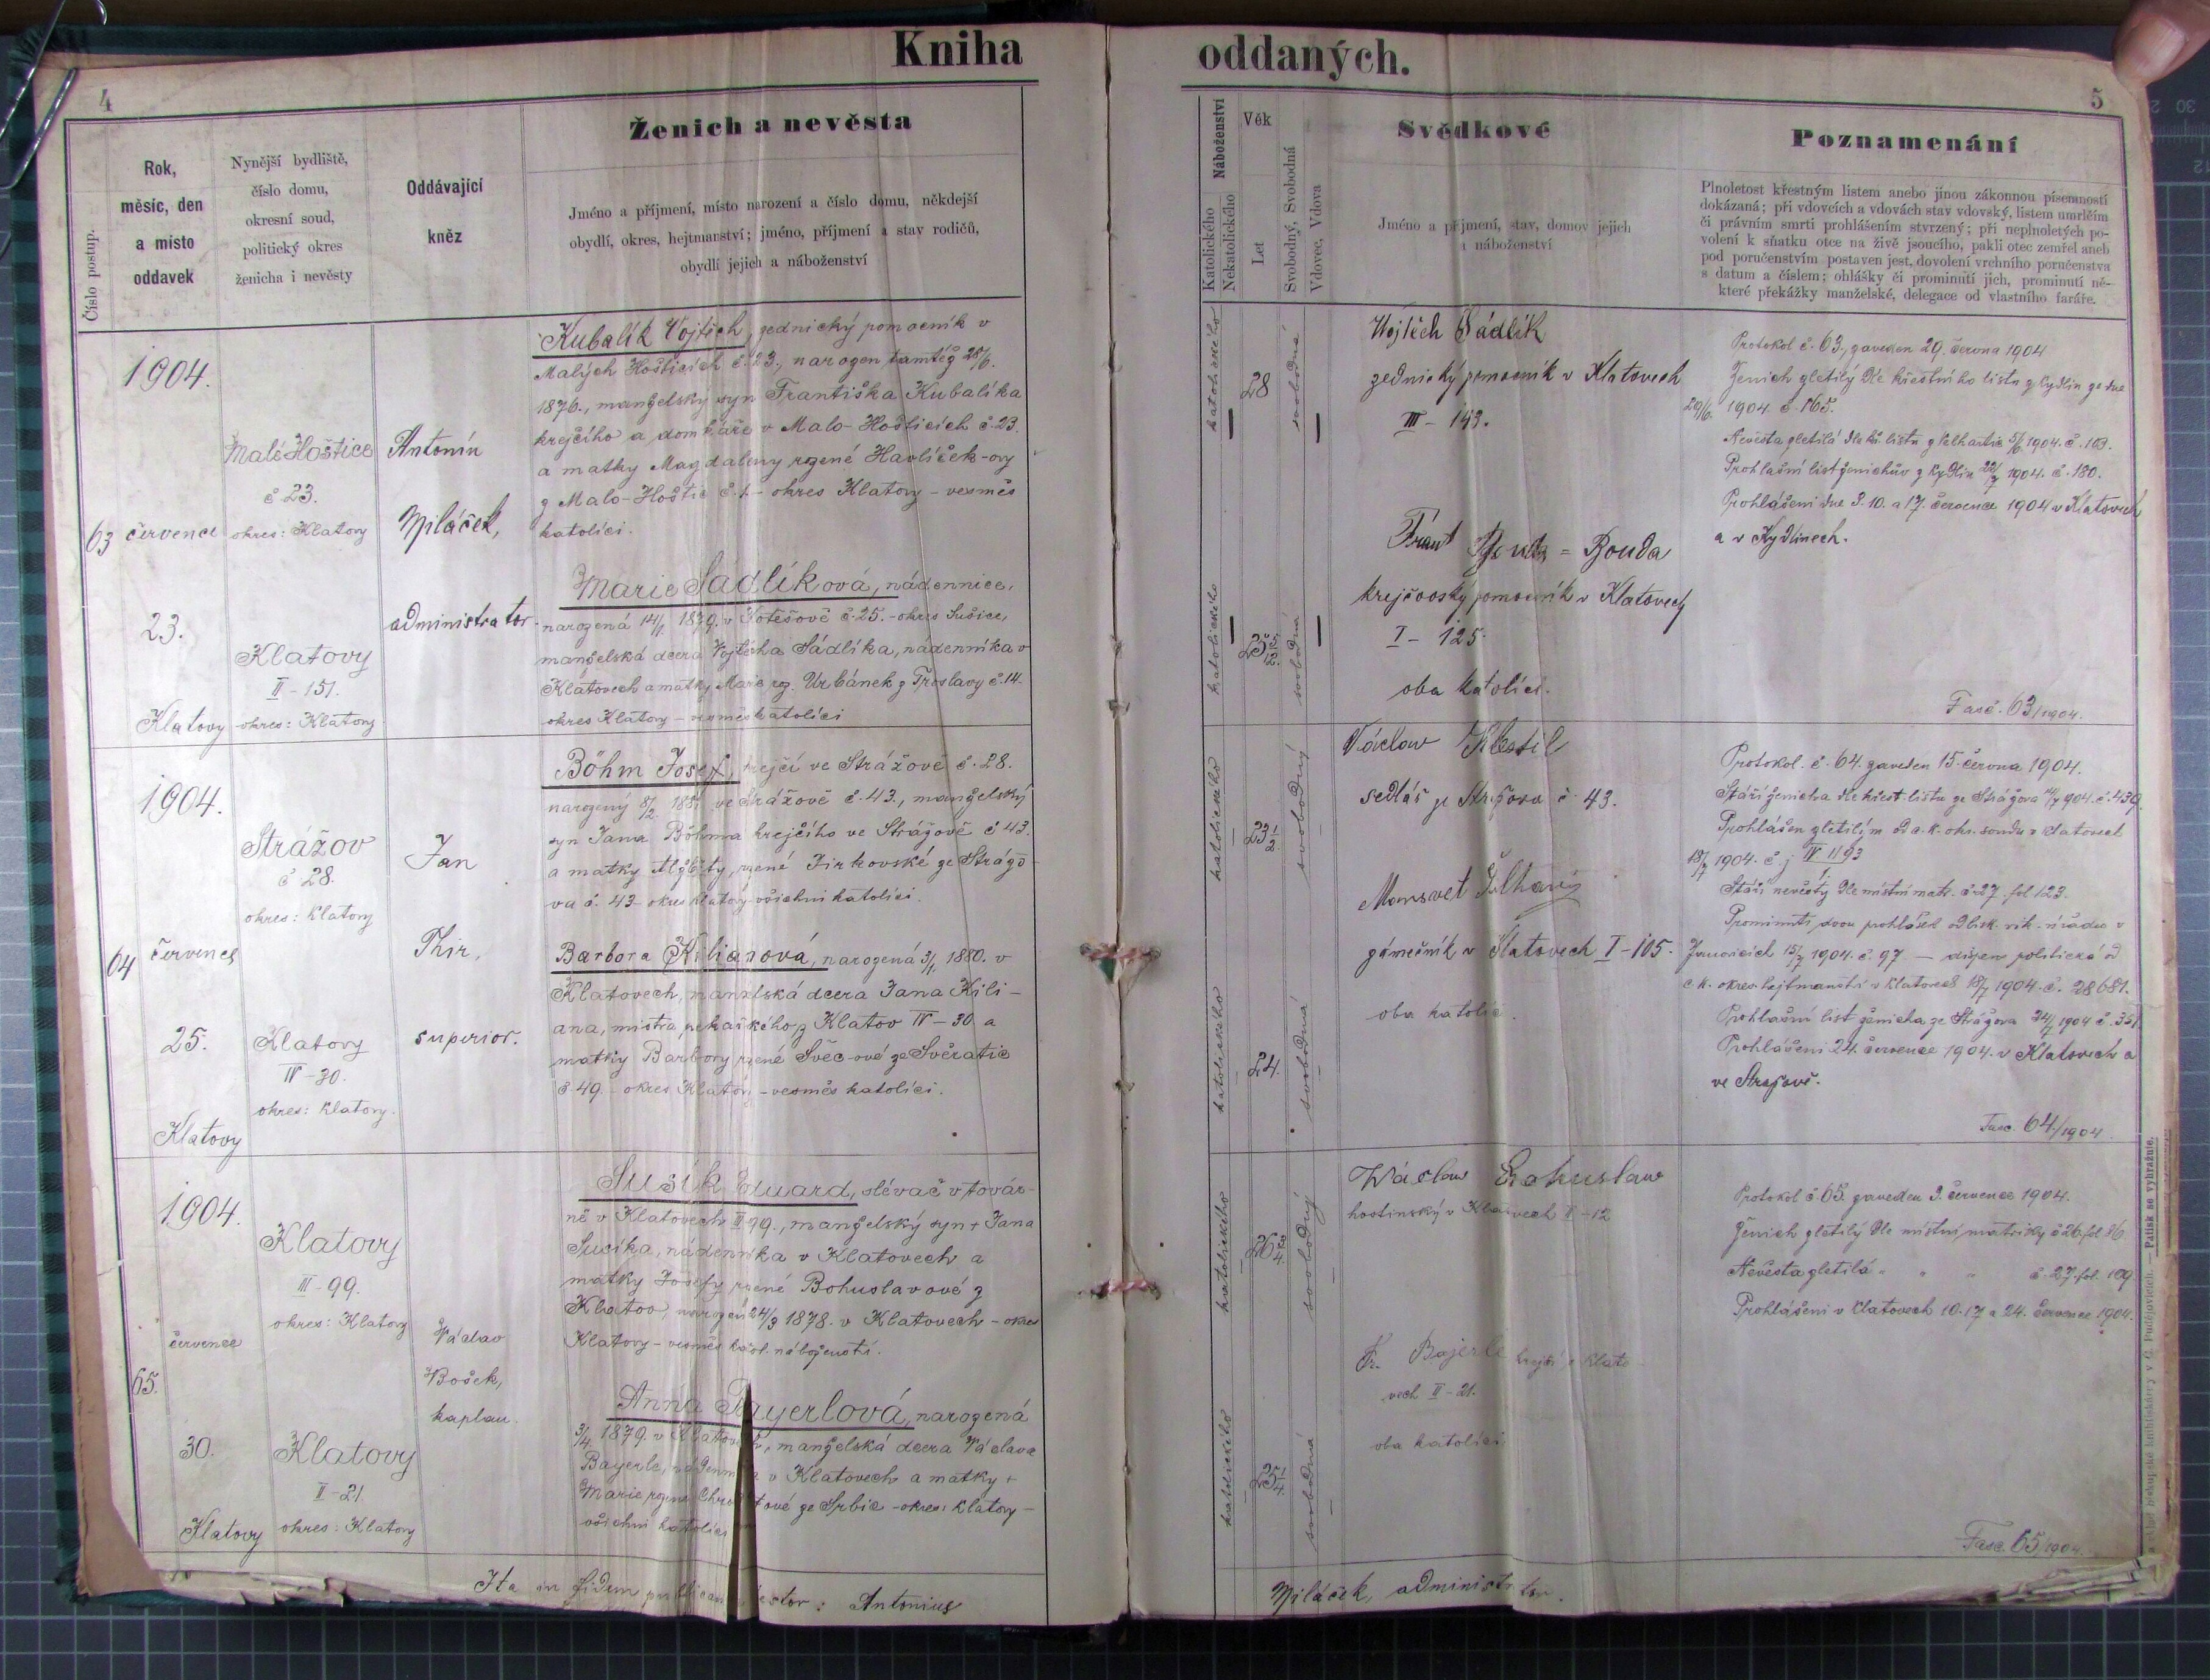 Kniha oddaných.
4
5
Číslo postup.
Rok,
měsíc, den
a místo
oddavek
Nynější bydliště,
číslo domu,
okresní soud,
politický okres
ženicha i nevěsty
Oddávající
kněz
Ženich a nevěsta
Jméno a příjmení, místo narození a číslo domu, někdejší
obydlí, okres, hejtmanství; jméno, příjmení a stav rodičů,
obydlí jejich a náboženství
Náboženství
Katolického
Nekatolického
Věk
Let
Svobodný, Svobodná
Vdovec, Vdova
Svědkové
Jméno a příjmení, stav, domov jejich
a náboženství
Poznamenání
Plnoletost křestným listem anebo jinou zákonnou písemností
dokázaná; při vdovcích a vdovách stav vdovský, listem umrlčím
či právním smrti prohlášením stvrzený; při neplnoletých po-
volení k sňatku otce na živě jsoucího, pakli otec zemřel aneb
pod poručenstvím postaven jest, dovolení vrchního poručenstva
s datum a číslem; ohlášky či prominutí jich, prominutí ně-
které překážky manželské, delegace od vlastního faráře.
63
1904.
července
23.
Klatovy
Malé Hoštice
č 23.
okres: Klatovy
Klatovy
II - 151.
okres: Klatovy
Antonín
Miláček,
administrator.
Kubalík Vojtěch, zednický pomocník v
Malých Hošticích č. 23., narozen tamtéž 28/6.
1876., manželský syn Františka Kubalíka
krejčího a domkáře v Malo-Hošticích č. 23.
a matky Magdaleny rozené Havlíček-ovy
z Malo-Hoštic č. 1. - okres Klatovy - vesměs
katolíci.
Marie Sádlíková, nádennice,
narozená 14/1 1879. v č. 25. - okres Sušice,
manželská dcera Vojtěcha Sádlíka, nádenníka v
Klatovech a matky Marie roz. Urbánek z č. 14.
okres Klatovy - vesměs katolíci
katolického
28
svobodný
katolického
25 5/12
svobodná
Vojtěch Sádlík
zednický pomocník v Klatovech
III - 143.
Frant Bouda = Bouda
krejčovský pomocník v Klatovech
I - 125.
oba katolíci.
Protokol č. 63., zaveden 29. června 1904
Ženich zletilý dle křestního listu z Kydlin ze dne
29/6. 1904. č. 165.
Nevěsta zletilá dle kř. listu z 5/6 1904. č. 103.
Prohlašní list ženichův z Kydlin 22/7 1904. č. 180.
Prohlášeni dne 3. 10. a 17. července 1904 v Klatovech
a v Kydlinech.
Fasc. 63/1904.
64
1904.
července
25.
Klatovy
Strážov
č 28.
okres: Klatovy
Klatovy
IV - 30.
okres: Klatovy.
Jan
Thir,
superior.
Böhm Josef, krejčí ve Strážově č. 28.
narozený 8/2. 188 ve Strážově č. 43., manželský
syn Jana Böhma krejčího ve Strážově č 43.
a matky Alžběty, rozené Jirkovské ze Strážo-
va č. 43 - okres Klatovy všichni katolíci.
Barbora Kilianová, narozená 3/1 1880. v
Klatovech, manželská dcera Jana Kili-
ana, mistra pekařského z Klatov IV - 30 a
matky Barbory rozené Švec-ové ze Svératic
č 49 - okres Klatovy - vesměs katolíci.
katolického
23 1/2
svobodný
katolického
24
svobodná
Václav Klestil
sedlář ze Strážova č. 43.
Mansvet
zámečník v Klatovech I - 105.
oba katolíci.
Protokol. č. 64. zaveden 15. června 1904.
Stáří ženicha dle křest. listu ze Strážova 14/7 904. č. 439.
Prohlášen zletilým od c. k. okr. soudu v Klatovech
18/7 1904. č. j. IV 11 93
Stáří nevěsty dle místní matr. č 27 fol 123.
Prominuti dvou prohlášek od bisk. vik. úřadu v
Janovicích 15/7 1904. č. 97. — dispens politická od
c. k. okres. hejtmanství v Klatovech 18/7 1904. č. 28681.
Prohlašní list ženicha ze Strážova 24/7 1904 č. 35
Prohlášeni 24. července 1904. v Klatovech a
ve Strážově.
Fasc. 64/1904.
65.
1904.
července
30.
Klatovy
Klatovy
III - 99.
okres: Klatovy
Klatovy
II - 21.
okres: Klatovy
Václav
Bošek,
kaplan.
Sušík Eduard, slévač v továr-
ně v Klatovech III 99., manželský syn + Jana
Sušíka, nádenníka v Klatovech a
matky Josefy rozené Bohuslavové z
Klatov, narozen 24/3 1878. v Klatovech - okres
Klatovy - vesměs katol. náboženství.
Anna Bayerlová, narozená
3/4 1879. v Klatovech, manželská dcera Václava
Bayerle, nádenníka v Klatovech a matky +
Marie rozené ze Srbic - okres: Klatovy -
všichni katolíci
katolického
26 4/12
svobodný
katolického
25 1/4
svobodná
Wáclaw Bohuslaw
hostinský v Klatovech II - 12
Fr. Bajerle krejčí v Klato-
vech II - 21.
oba katolíci
Protokol č 65. zaveden 3. července 1904.
Ženich zletilý dle místní matriky č 26 fol 86
Nevěsta zletilá " " " č. 27. fol. 109.
Prohlášeni v Klatovech 10. 17 a 24. července 1904.
Fasc. 65/1904.
Ita in fidem publicam testor: Antonius
Miláček, administrator.
Patisk se vyhražuje.